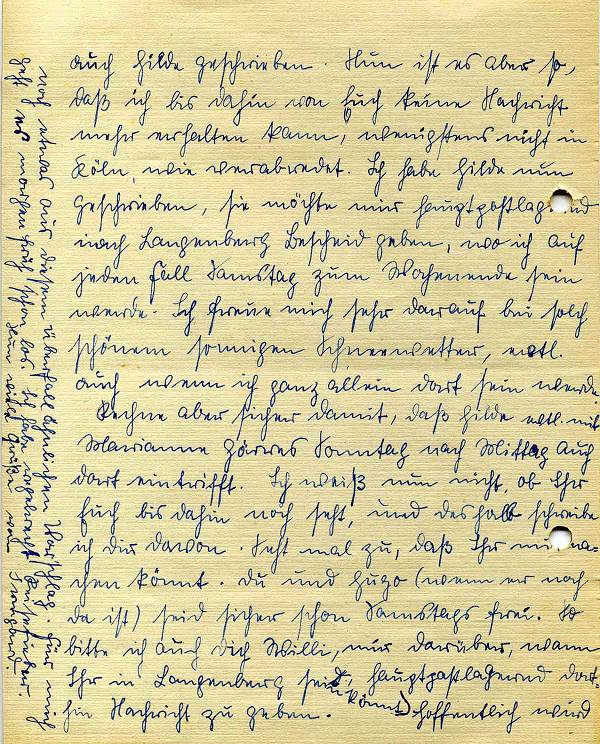 auch Hilde geschrieben. Nun ist es aber so,
daß ich bis dahin von Euch keine Nachricht
mehr erhalten kann, wenigstens nicht in
Köln, wie verabredet. Ich habe Hilde nun
geschrieben, sie möchte mir hauptpostlagernd
nach Langenberg Bescheid geben, wo ich auf
jeden Fall Samstag zum Wochenende sein
werde. Ich freue mich sehr darauf bei solch
schönem sonnigen Schneewetter, evtl.
auch wenn ich ganz allein dort sein werde
Rechne aber sicher damit, daß Hilde evtl. mit
Marianne Görres Sonntag nach Mittag auch
dort eintrifft. Ich weiß nun nicht, ob Ihr
Euch bis dahin noch seht, und deshalb schreibe
ich Dir davon. Seht mal zu, daß Ihr mitma-
chen könnt. Du und Hugo (wenn er noch
da ist) seid sicher schon Samstags frei. So
bitte ich auch Dich Willi, mir darüber, wann
Ihr in Langenberg sein könnt, hauptpostlagernd dort-
hin Nachricht zu geben. Hoffentlich wird
noch etwas aus diesem überfallähnlichen Vorschlag. Für mich
geht es morgen früh schon los. Ich habe regelrecht Reisefieber.
Nun viele Grüße von Irmgard.